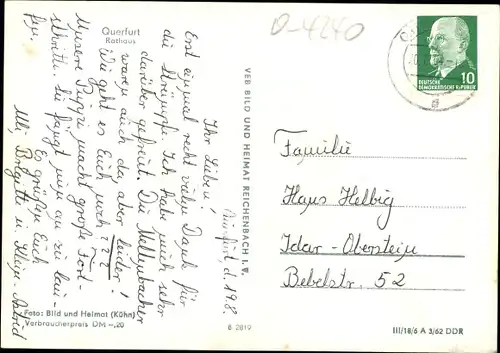 Querfurt
Rathaus
D-4240
Querfurt, d. 19.8.
Ihr Lieben!
Erst einmal recht vielen Dank für
die Strümpfe. Ich habe mich sehr
darüber gefreut. Die
waren auch da, aber leider!
Wie geht es Euch noch???
Unsere Puppi macht große Fort-
schritte. Sie fängt nun an zu lau-
fen.
Es grüßen Euch
Ulli, Brigitte u. Astrid
Foto: Bild und Heimat (Kühn)
Verbraucherpreis DM -,20
VEB BILD UND HEIMAT REICHENBACH I. V.
B 2819
DEUTSCHE
DEMOKRATISCHE REPUBLIK
10
Familie
Hans Helbig
Idar-Oberstein
Bebelstr. 52
III/18/6 A 3/62 DDR